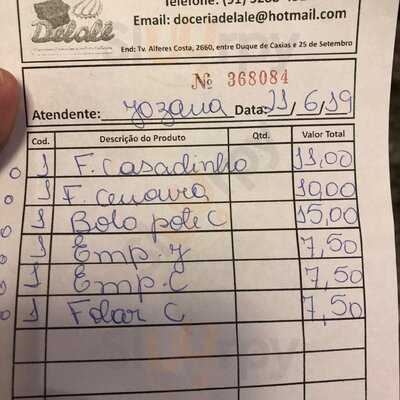 Delalê
Email: doceriadelale@hotmail.com
End: Tv. Alferes Costa, 2660, entre Duque de Caxias e 25 de Setembro
Nº 368084
Atendente: Jozana Data: 21/6/19
Cod. Descrição do Produto Qtd. Valor Total
1 F. Casadinho 11,00
1 F. Cenoura 10,00
1 Bolo pote C 15,00
1 Emp. y 7,50
1 Emp. C 7,50
1 Folar C 7,50